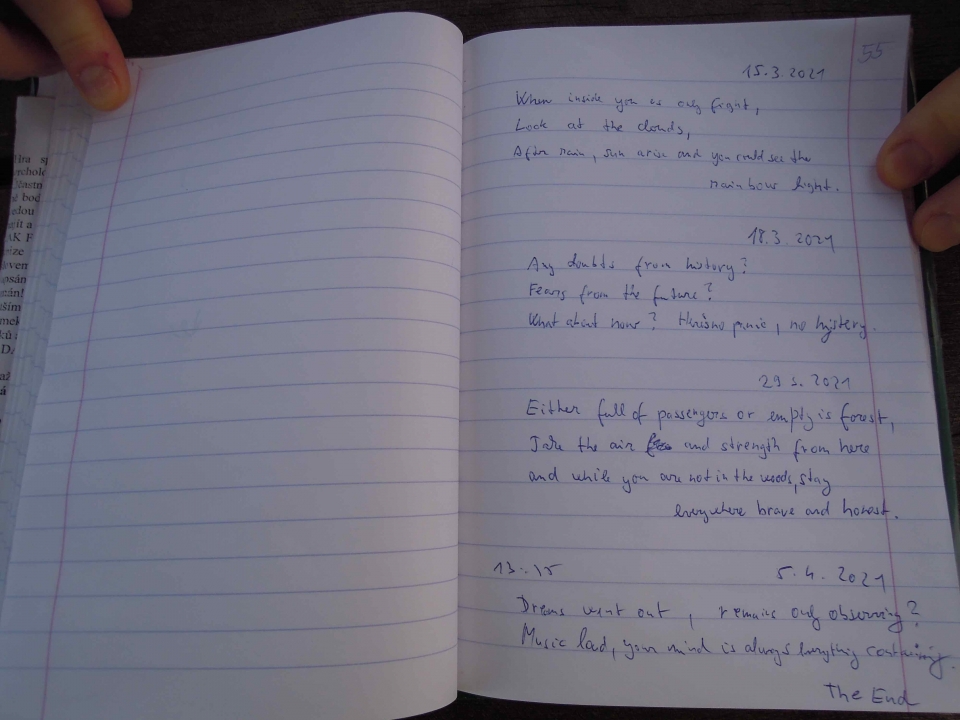 Hra sp
Vlastn
é bod
edou
zít a
AK F
eize
55
15.3.2021
When inside you is only fight,
Look at the clouds,
After rain, sun arise and you could see the
rainbow light.
18.3.2021
Any doubts from history?
Fears from the future?
What about now? There is no panic, no hystery.
29 3. 2021
Either full of passengers or empty is forest,
Take the air and strength from here
and while you are not in the woods, stay
everywhere brave and honest.
13:15
5.4.2021
Dreams went out, remains only observing?
Music loud, your mind is always everything containing.
The End